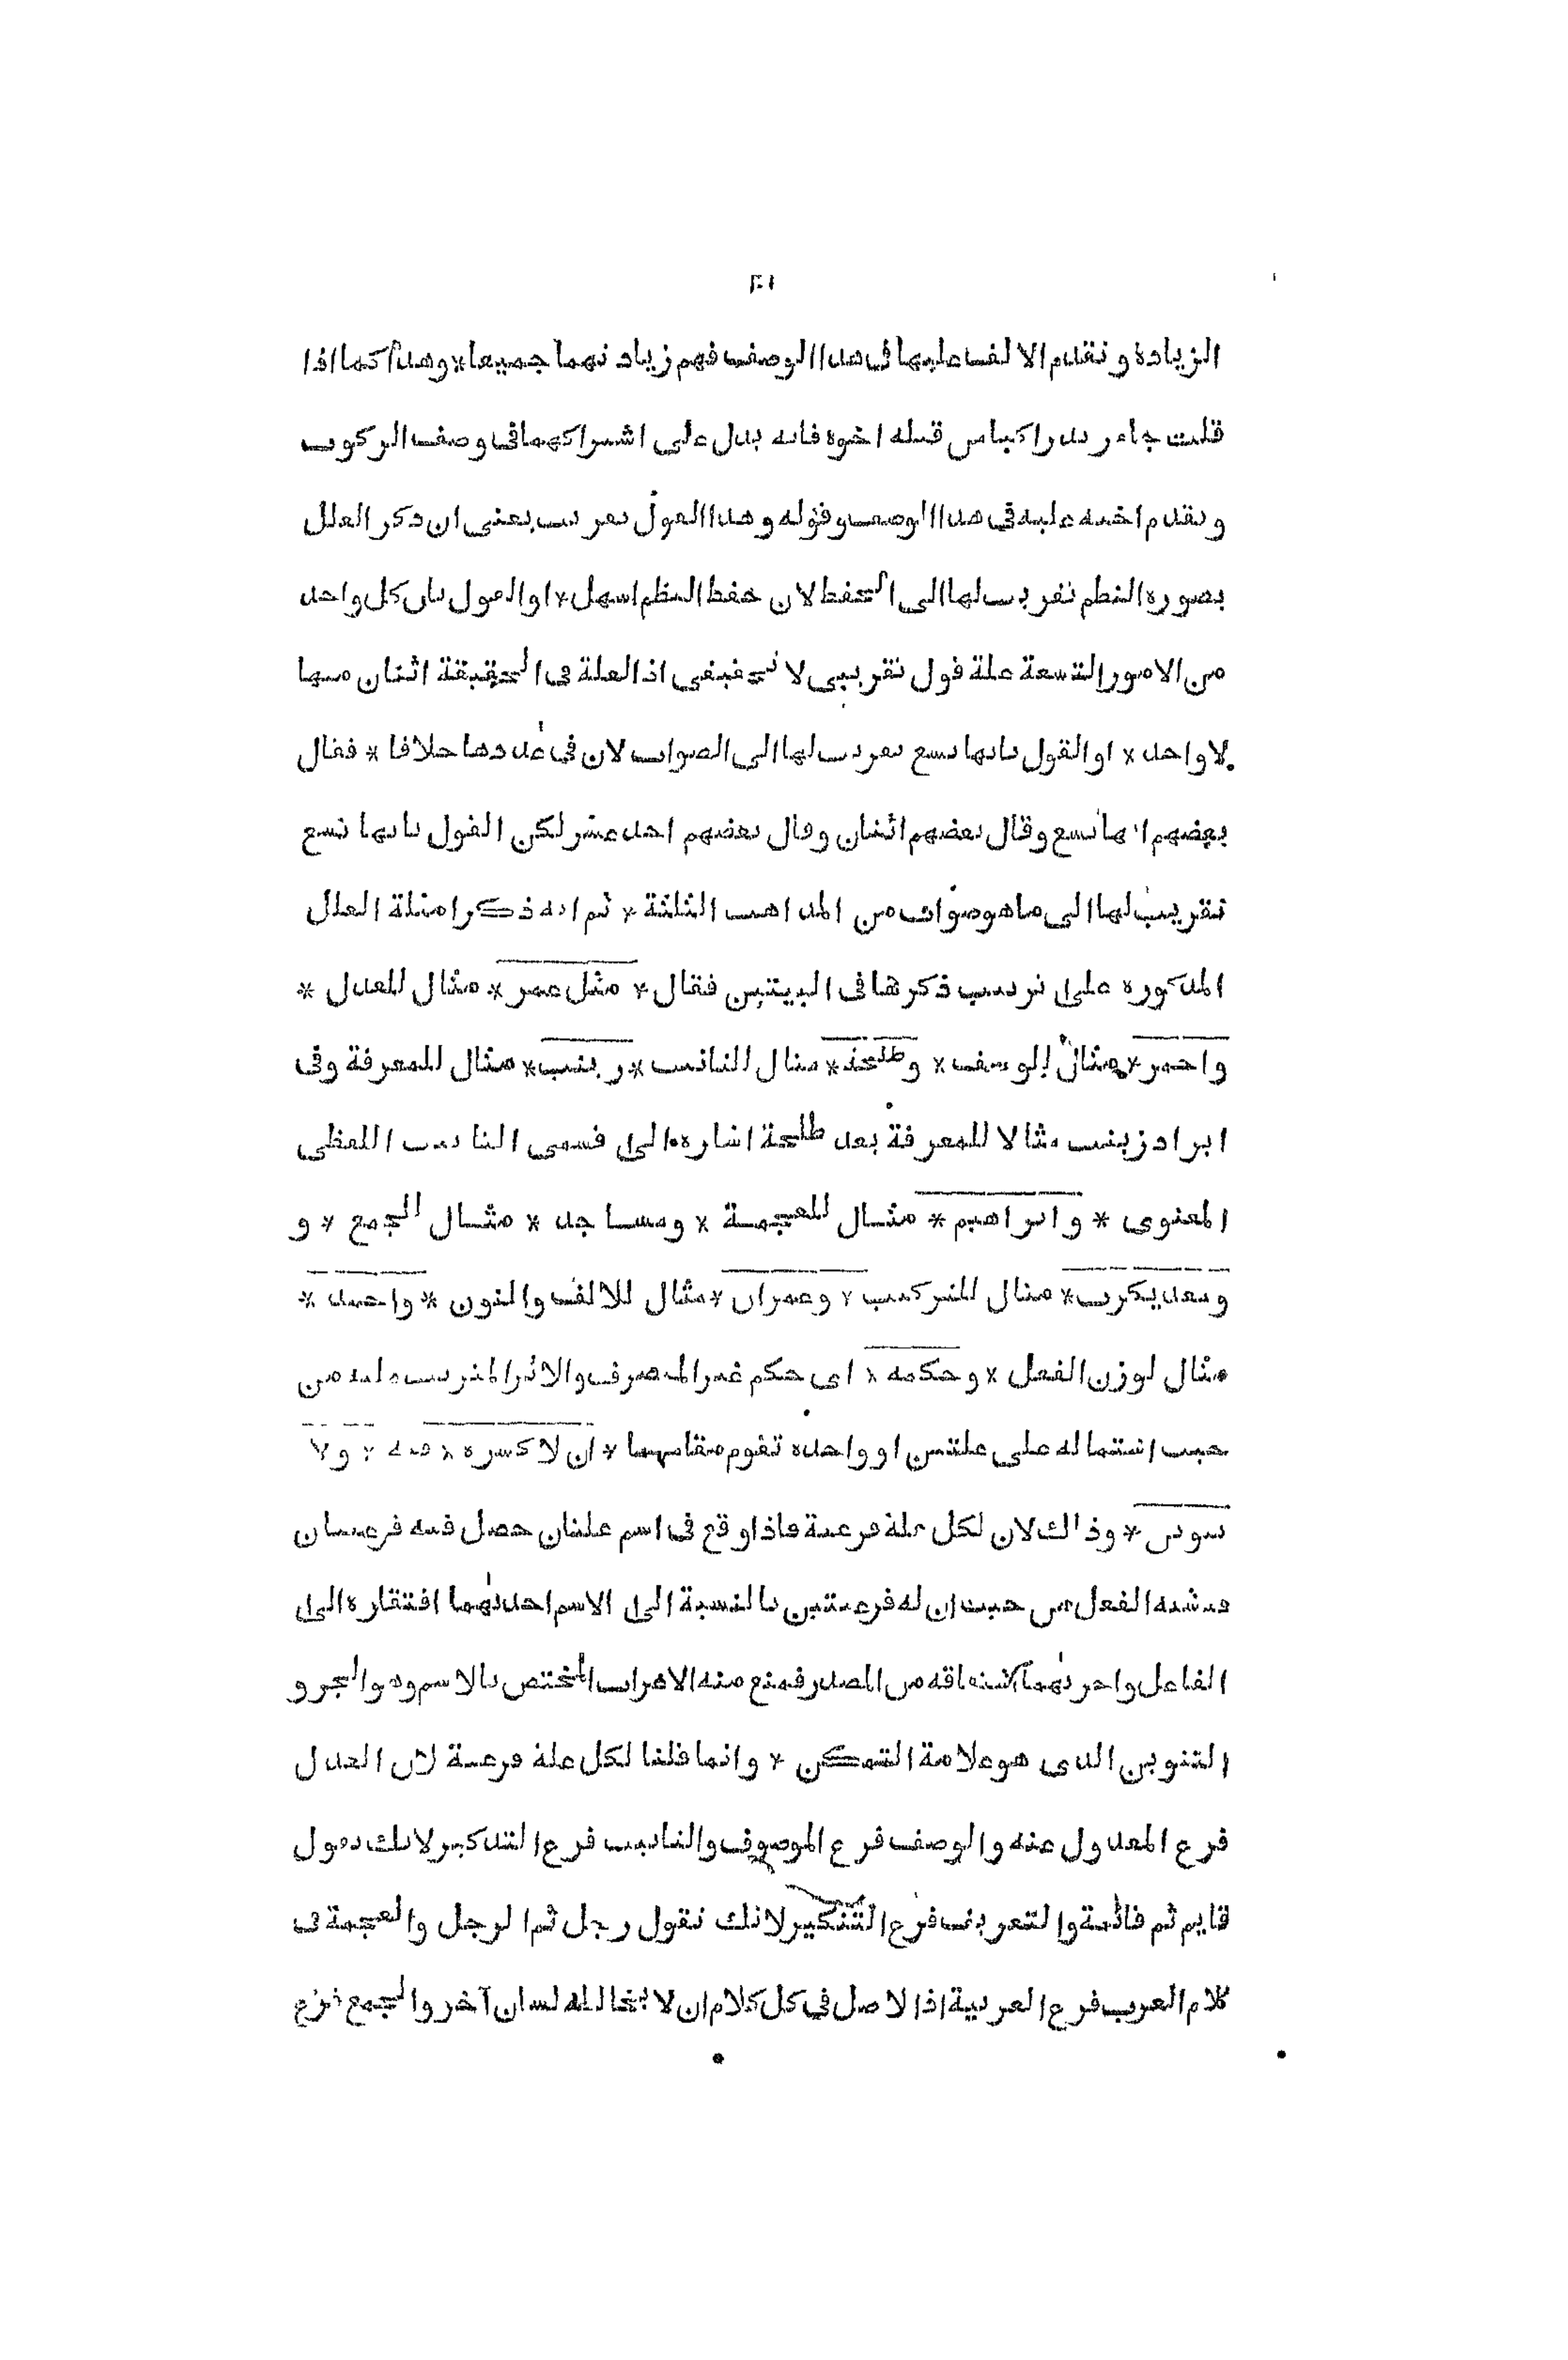 الزيادة وتقدم الالف عليها في هذا الوصف فهم زيادتهما جميعا * وهذا كما اذا
قلت جاء زيد راكبا من قبله اخوه فانه يدل على اشتراكهما في وصف الركوب
وتقدم اخيه عليه في هذا الوصف وقوله وهذا القول تقريب يعني ان ذكر العلل
بصورة النظم تقريب لها الى الحفظ لان حفظ النظم اسهل * او القول بان كل واحد
من الامور التسعة علة قول تقريبي لا تحقيقي اذ العلة في الحقيقة اثنان منها
لا واحد * او القول بانها تسع تقريب لها الى الصواب لان في عددها خلافا * فقال
بعضهم انها تسع وقال بعضهم اثنان وقال بعضهم احد عشر لكن القول بانها تسع
تقريب لها الى ما هو صواب من المذاهب الثلثة * ثم انه ذكر امثلة العلل
المذكورة على ترتيب ذكرها في البيتين فقال * مثل عمر * مثال للعدل *
واحمر * مثال للوصف * وطلحة * مثال للتانيث * وزينب * مثال للمعرفة وفي
ايراد زينب مثالا للمعرفة بعد طلحة اشارة الى قسمي التانيث اللفظي
المعنوي * وابراهيم * مثال للعجمة * ومساجد * مثال الجمع * و
ومعديكرب * مثال للتركيب * وعمران * مثال للالف والنون * واحمد *
مثال لوزن الفعل * وحكمه * اى حكم غير المنصرف والاثر المترتب عليه من
حيث اشتماله على علتين او واحدة تقوم مقامهما * ان لا كسرة * فيه * ولا
تنوين * وذالك لان لكل علة فرعية فاذا وقع في اسم علتان حصل فيه فرعيتان
فيشبه الفعل من حيث ان له فرعيتين بالنسبة الى الاسم احدتهما افتقاره الى
الفاعل واخرتهما اشتقاقه من المصدر فمنع منه الاعراب المختص بالاسم وهو الجر و
التنوين الذى هو علامة التمكن * وانما قلنا لكل علة فرعية لان العدل
فرع المعدول عنه والوصف فرع الموصوف والتانيث فرع التذكير لانك تقول
قايم ثم قائمة والتعريف فرع التنكير لانك تقول رجل ثم الرجل والعجمة في
كلام العرب فرع العربية اذ الاصل في كل كلام ان لا يخالطه لسان آخر والجمع فرع